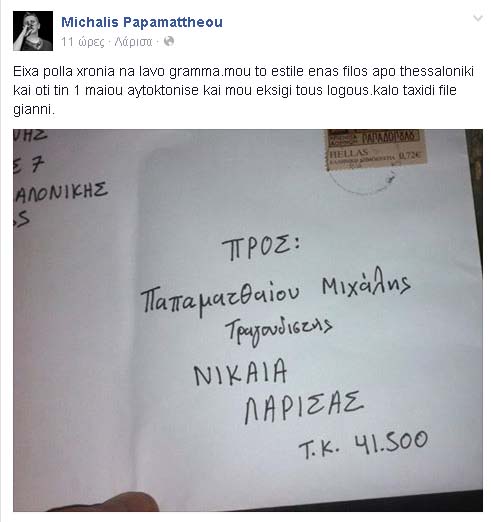 Michalis Papamattheou
11 ώρες · Λάρισα ·
Eixa polla xronia na lavo gramma.mou to estile enas filos apo thessaloniki
kai oti tin 1 maiou aytoktonise kai mou eksigi tous logous.kalo taxidi file
gianni.
ΝΗΣ
Σ 7
ΑΛΟΝΙΚΗΣ
S
ΠΑΠΑΔΟΡΔΑΣ
HELLAS
0,72€
ΠΡΟΣ:
Παπαματθαίου Μιχάλης
Τραγουδιστης
ΝΙΚΑΙΑ
ΛΑΡΙΣΑΣ
Τ.Κ. 41.500